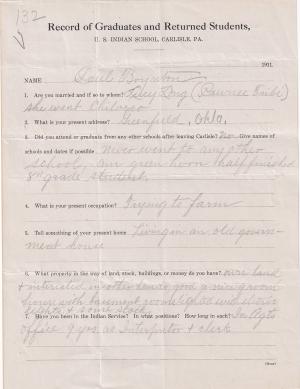 132
Record of Graduates and Returned Students,
U. S. INDIAN SCHOOL, CARLISLE, PA.
1911.
NAME Paul Boynton
1. Are you married and if so to whom? Lucy Long (Pawnee Tribe)
she went Chilocco
2. What is your present address? Greenfield, Okla.
3. Did you attend or graduate from any other schools after leaving Carlisle? no Give names
of schools and dates if possible never went to any other
school, am green horn half finished
8th grade student.
4. What is your present occupation? Trying to farm
5. Tell something of your present home Living in an old govern-
ment house
6. What property in the way of land, stock, buildings, or money do you have? own land
& interested in other lands good nine room
house with basement room lighted with electric
lights & some stock
7. Have you been in the Indian Service? In what positions? How long in each? In Agts
office 9 yrs as Interpreter & clerk
(Over)